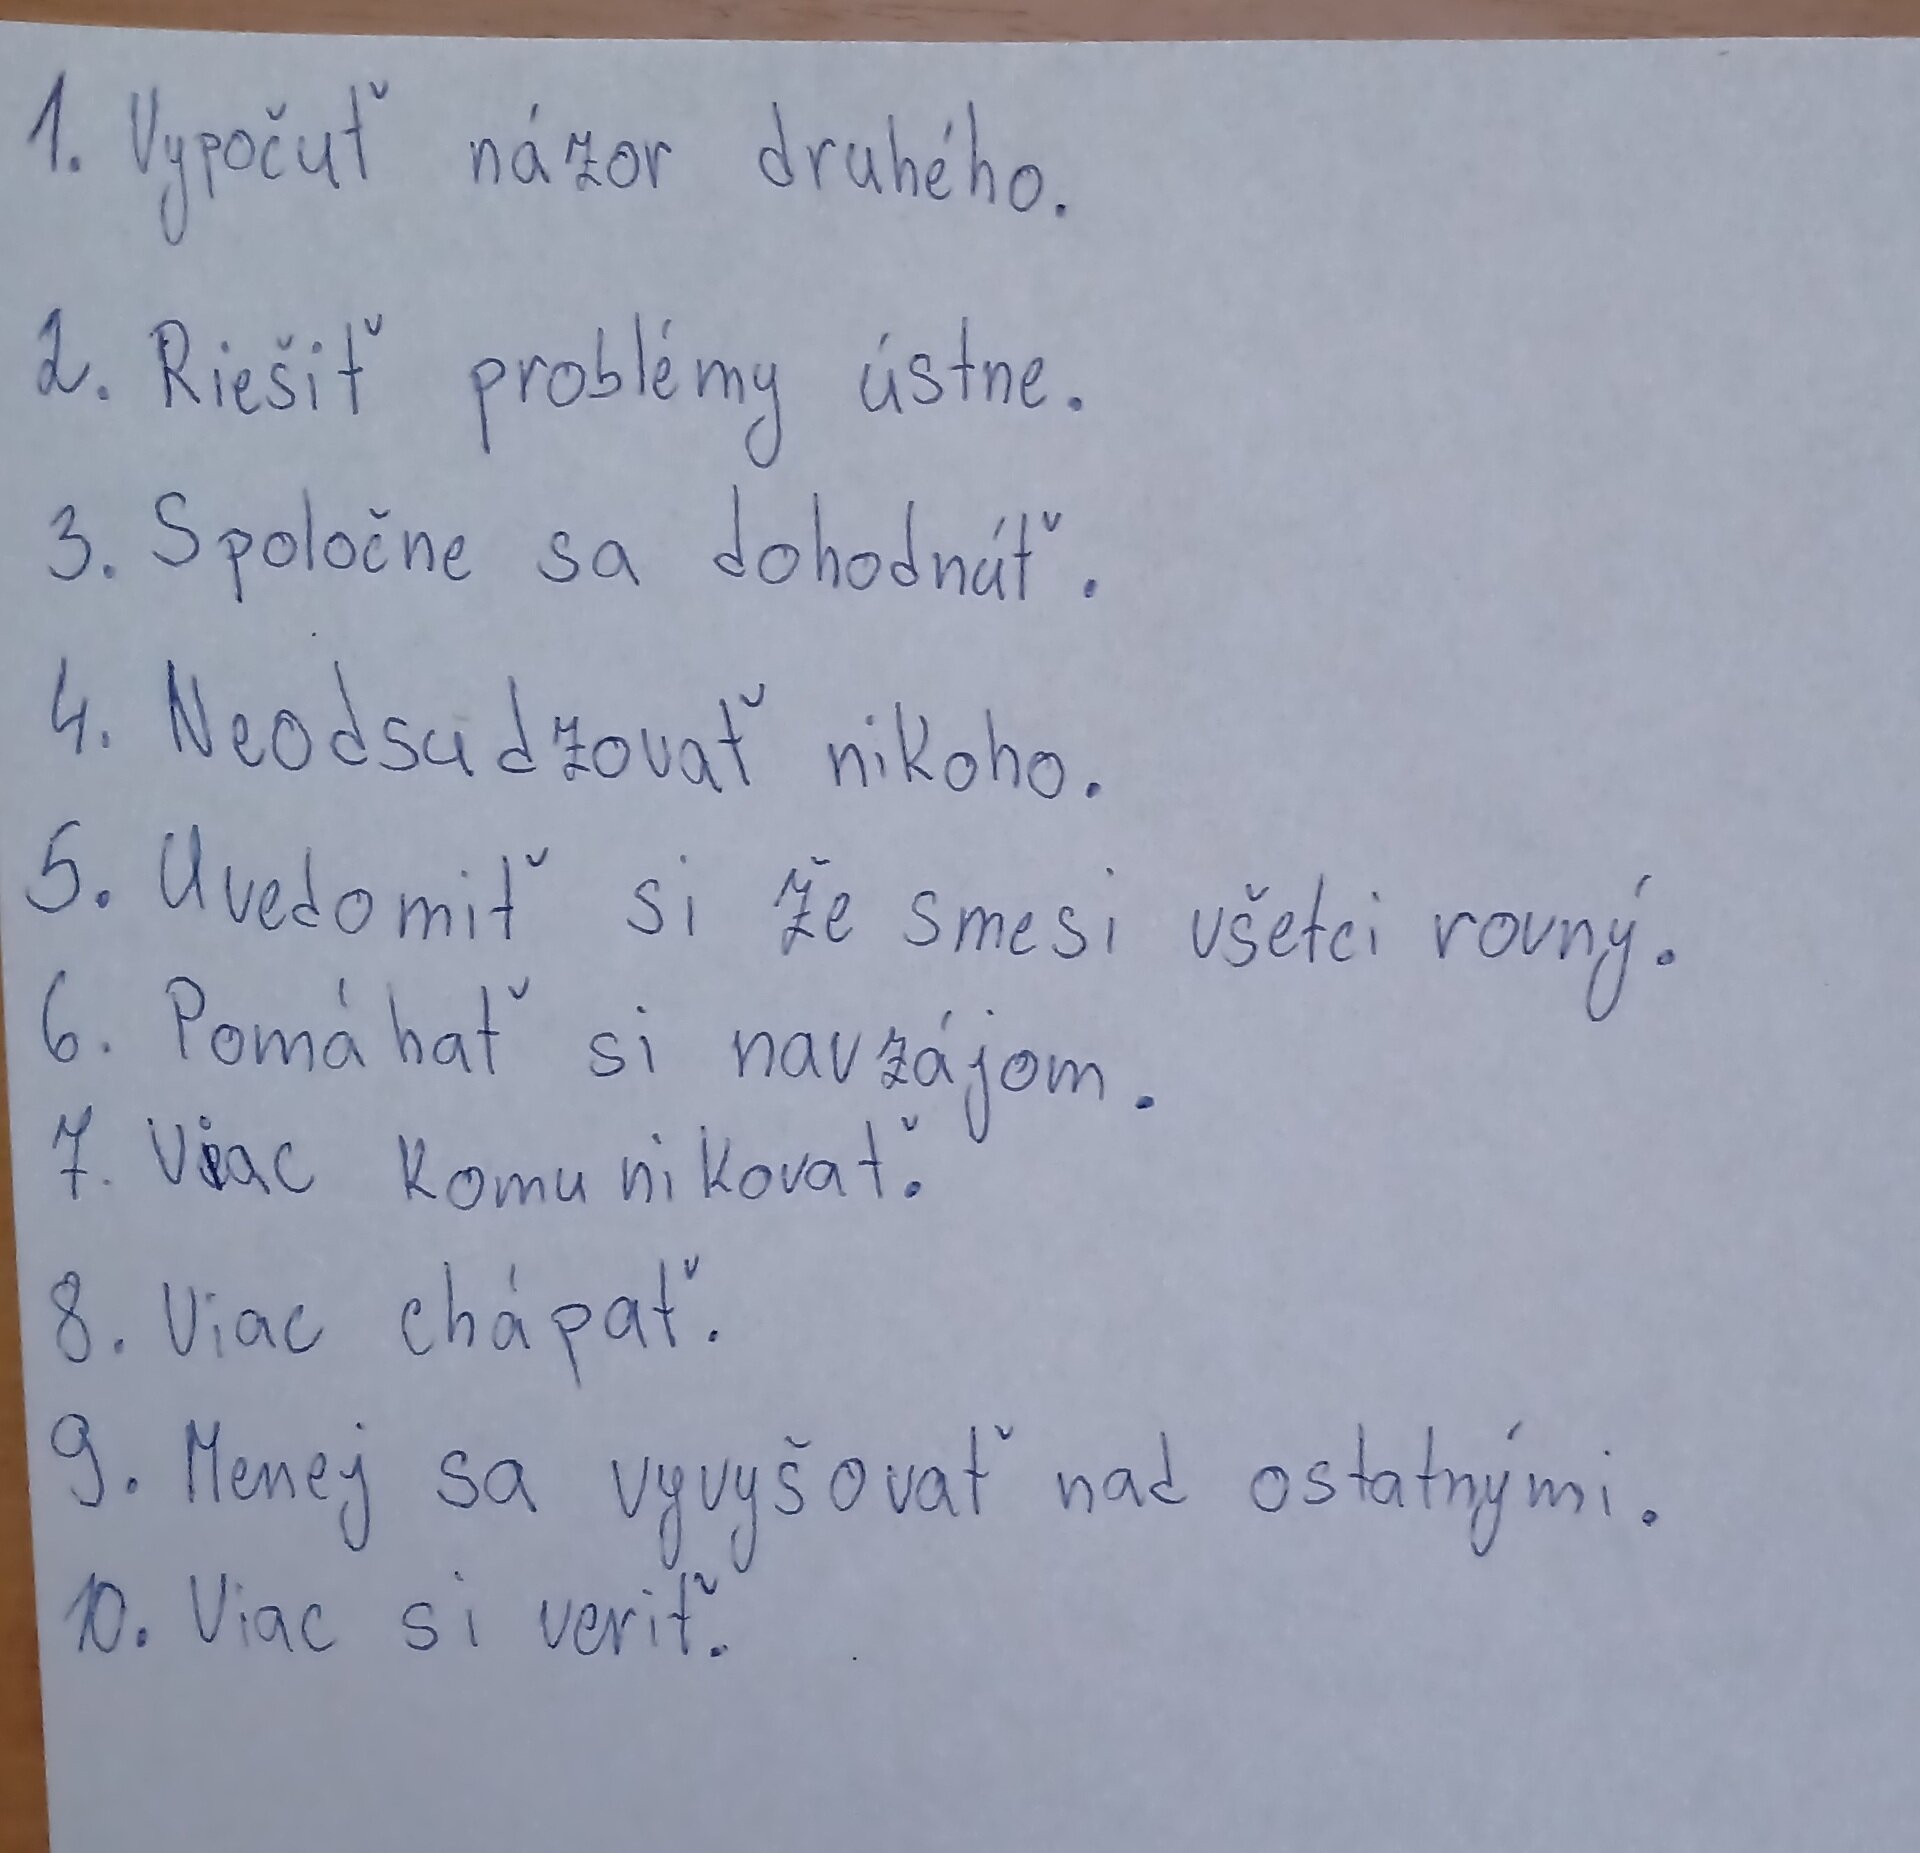 1. Vypočuť názor druhého.
2. Riešiť problémy ústne.
3. Spoločne sa dohodnúť.
4. Neodsudzovať nikoho.
5. Uvedomiť si že smesi všetci rovný.
6. Pomáhať si navzájom.
7. Viac komunikovať.
8. Viac chápať.
9. Menej sa vyvyšovať nad ostatnými.
10. Viac si veriť.